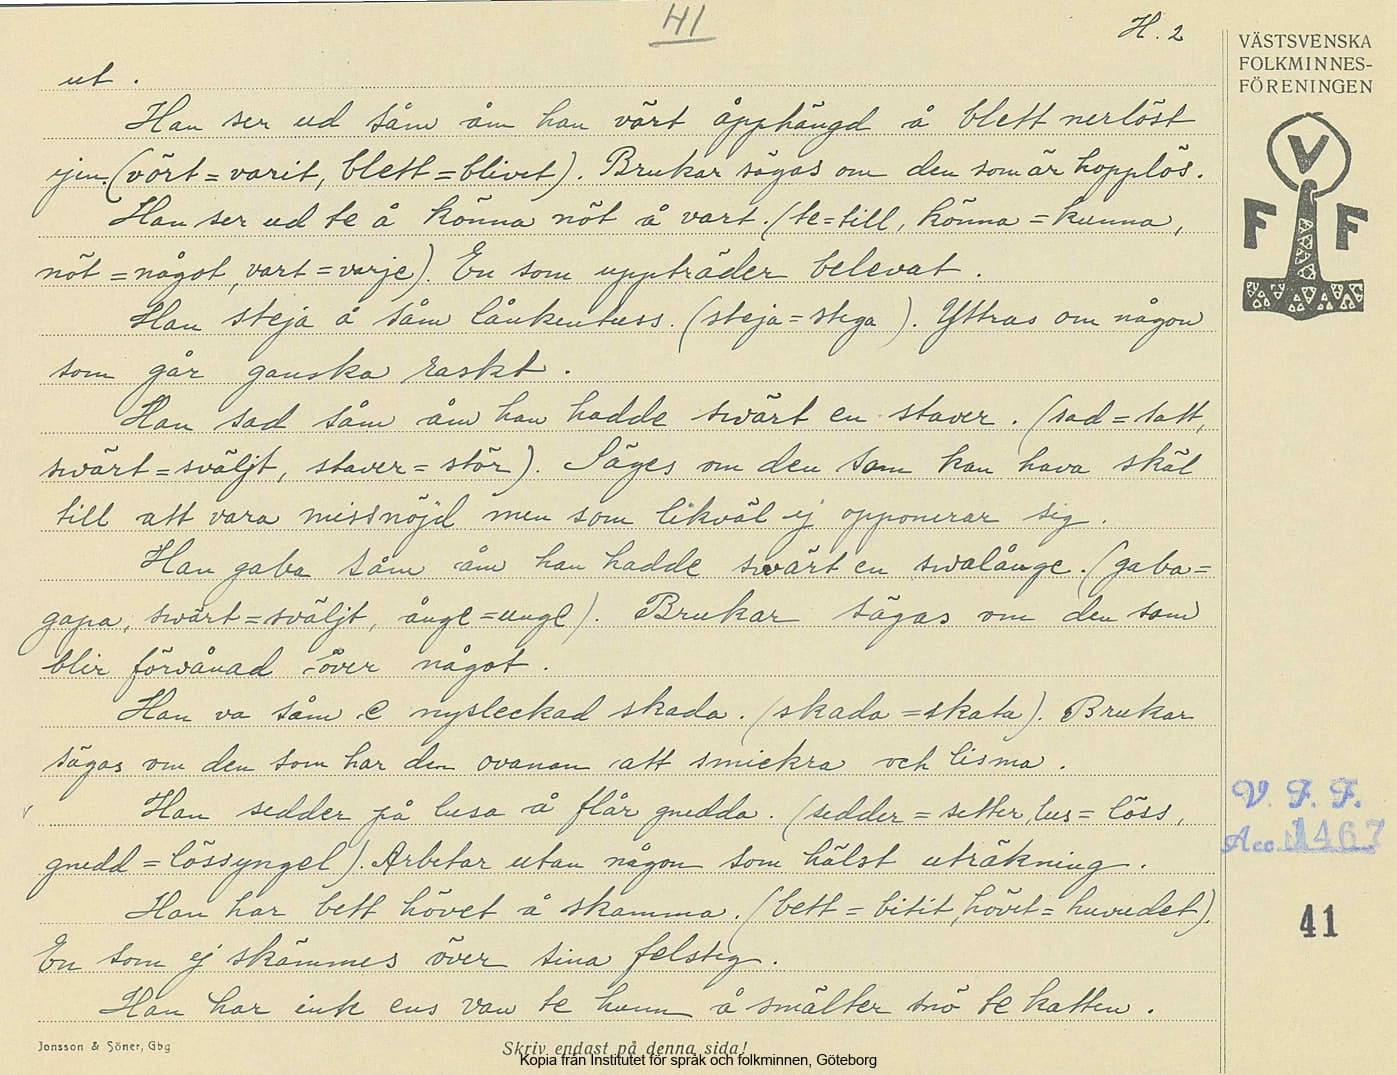 41
H. 2
VÄSTSVENSKA
FOLKMINNES-
FÖRENINGEN
V
F F
ut.
Han ser ud såm åm han vört åpphängd å blett nerlöst
ijen. (vört = varit, blett = blivet). Brukar sägas om den som är hopplös.
Han ser ud te å könna nöt å vart. (te = till, könna = kunna,
nöt = något, vart = varje). En som uppträder belevat.
Han steja å såm långkentuss. (steja = stiga). Yttras om någon
som går ganska raskt.
Han sad såm åm han hadde swärt en staver. (sad = satt,
swärt = sväljt, staver = stör). Säges om den som kan hava skäl
till att vara missnöjd men som likväl ej opponerar sig.
Han gaba såm åm han hadde swärt en swalånge. (gaba =
gapa, swärt = sväljt, ånge = unge). Brukar sägas om den som
blir förvånad över något.
Han va såm e nysleckad skada. (skada = skata). Brukar
sägas om den som har den ovanan att smickra och lisma.
Han sedder på lusa å flår gnedda. (sedder = sitter, lus = löss,
gnedd = lössyngel). Arbetar utan någon som hälst uträkning.
Han har bett hövet å skamma. (bett = bitit, hövet = huvudet).
En som ej skämmes över sina felsteg.
Han har ink ens van te hunn å smälter snö te katten.
V. F. F.
Acc. 1467
41
Jonsson & Söner, Gbg
Skriv endast på denna sida!
Kopia från Institutet för språk och folkminnen, Göteborg